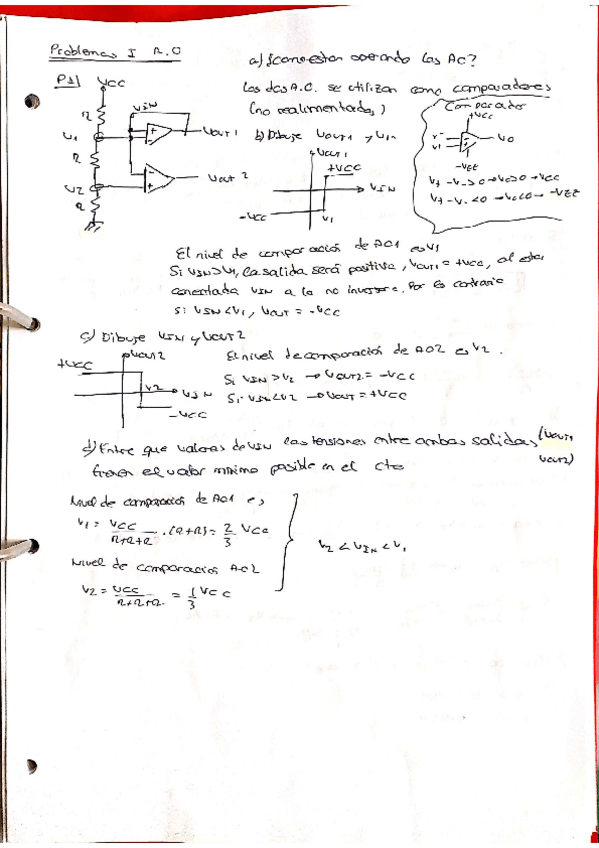 Problemas I A.O
a) ¿como estan operando los AO?
P1) VCC
Los dos A.O. se utilizan como comparadores
(no realimentados)
Comparador
+VCC
R
VIN
V1
Vout1
b) Dibuje Vout1 y VIN
V-
V+
VO
-VEE
R
Vout1
+VCC
VIN
V2
Vout 2
V+ - V- >0 → VO>0 → VCC
R
-VCC
V1
V+ - V- <0 → VO<0 → -VEE
El nivel de comparación de AO1 es V1
Si VIN>V1, la salida será positiva, Vout1 = +VCC, al estar
conectada VIN a la no inversora. Por el contrario
si VIN<V1, Vout = -VCC
c) Dibuje VIN y Vout2
Vout2
+VCC
V2
VIN
-VCC
El nivel de comparación de AO2 es V2.
Si VIN > V2 → Vout2 = -VCC
Si VIN<V2 → Vout = +VCC
d) Entre que valores de VIN las tensiones entre ambas salidas (Vout1
Vout2)
tienen el valor minimo posible en el cto
Nivel de comparación de AO1 es
V1 = VCC / R+R+R · (R+R) = 2/3 VCC
V2 < VIN < V1
Nivel de comparación AO2
V2 = VCC / R+R+R = 1/3 VCC